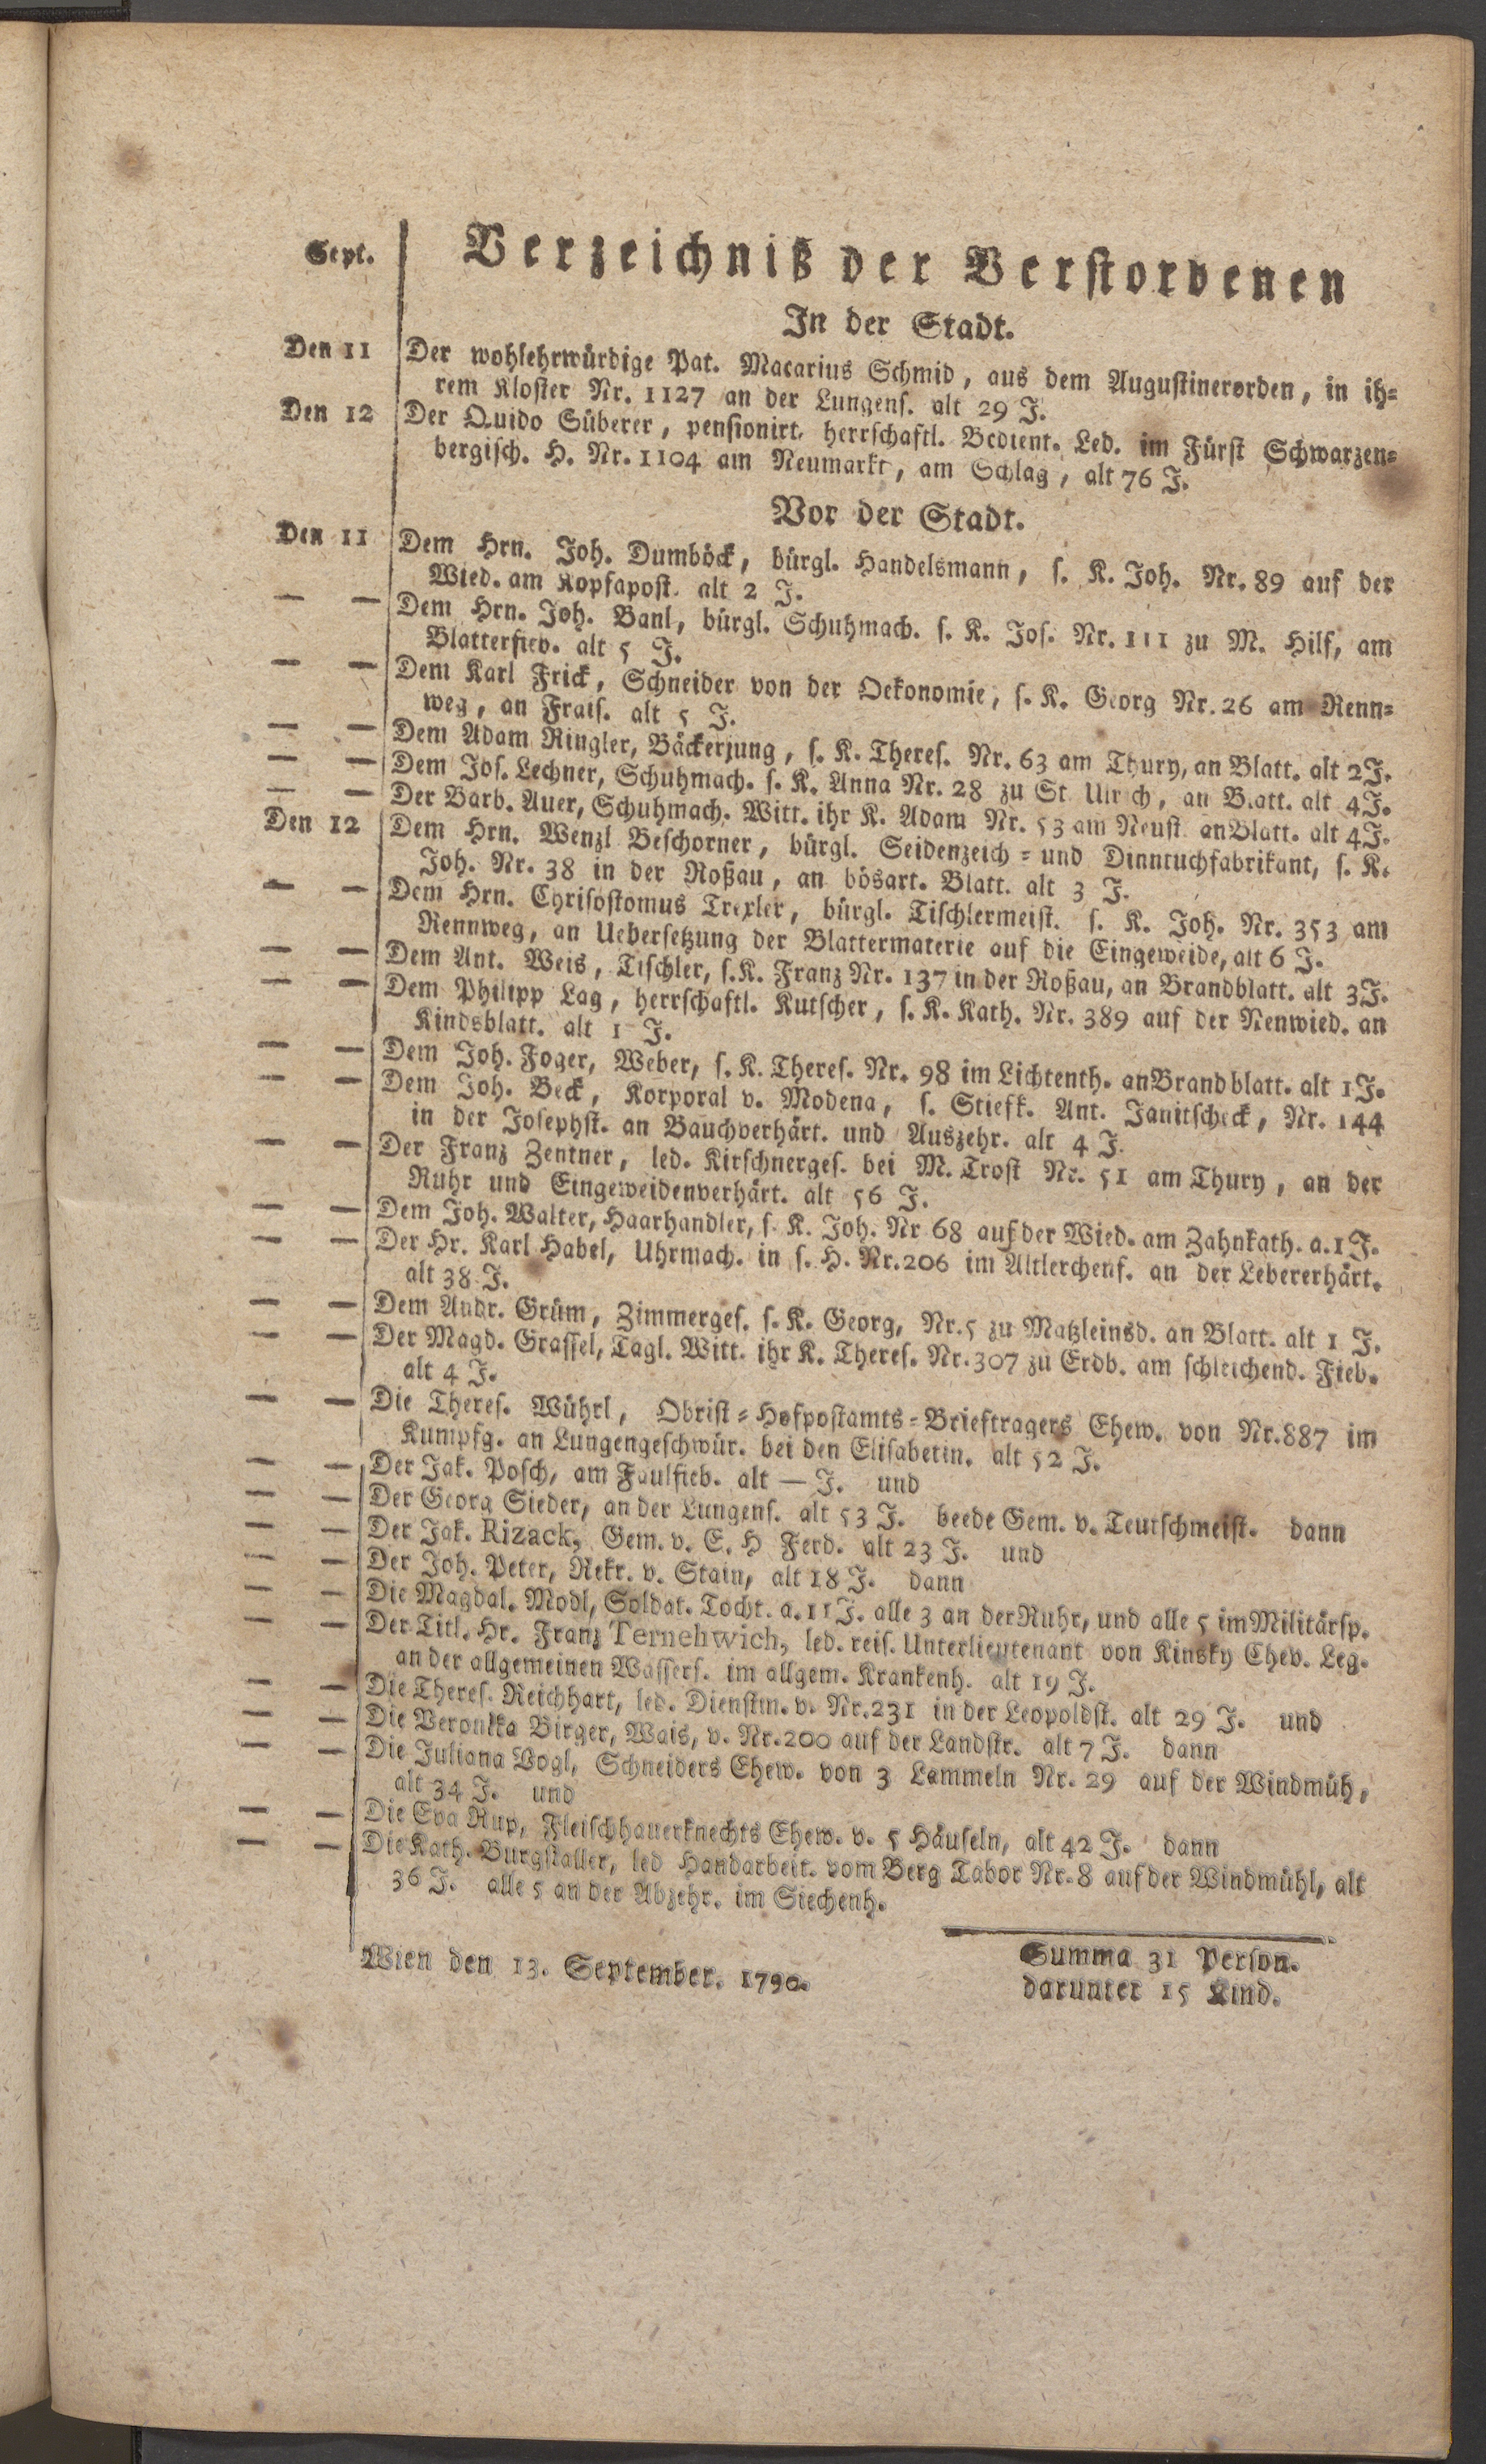 Sept.
Verzeichniß der Verstorbenen
In der Stadt.
Den 11 Der wohlehrwürdige Pat. Macarius Schmid, aus dem Augustinerorden, in ih-
rem Kloster Nr. 1127 an der Lungens. alt 29 J.
Den 12 Der Quido Süberer, pensionirt. herrschaftl. Bedient. Led. im Fürst Schwarzen-
bergisch. H. Nr. 1104 am Neumarkt, am Schlag, alt 76 J.
Vor der Stadt.
Den 11 Dem Hrn. Joh. Dumböck, bürgl. Handelsmann, s. K. Joh. Nr. 89 auf der
Wied. am Kopfapost. alt 2 J.
— — Dem Hrn. Joh. Banl, bürgl. Schuhmach. s. K. Jos. Nr. 111 zu M. Hilf, am
Blatterfieb. alt 5 J.
— — Dem Karl Frick, Schneider von der Oekonomie, s. K. Georg Nr. 26 am Renn-
weg, an Frais. alt 5 J.
— — Dem Adam Ringler, Bäckerjung, s. K. Theres. Nr. 63 am Thury, an Blatt. alt 2 J.
— — Dem Jos. Lechner, Schuhmach. s. K. Anna Nr. 28 zu St Ulrich, an Blatt. alt 4 J.
— — Der Barb. Auer, Schuhmach. Witt. ihr K. Adam Nr. 53 am Neust. an Blatt. alt 4 J.
Den 12 Dem Hrn. Wenzl Beschorner, bürgl. Seidenzeich- und Dinntuchfabrikant, s. K.
Joh. Nr. 38 in der Roßau, an bösart. Blatt. alt 3 J.
— — Dem Hrn. Chrisostomus Trexler, bürgl. Tischlermeist. s. K. Joh. Nr. 353 am
Rennweg, an Uebersetzung der Blattermaterie auf die Eingeweide, alt 6 J.
— — Dem Ant. Weis, Tischler, s. K. Franz Nr. 137 in der Roßau, an Brandblatt. alt 3 J.
— — Dem Philipp Lag, herrschaftl. Kutscher, s. K. Kath. Nr. 389 auf der Nenwied. an
Kindsblatt. alt 1 J.
— — Dem Joh. Foger, Weber, s. K. Theres. Nr. 98 im Lichtenth. an Brandblatt. alt 1 J.
— — Dem Joh. Beck, Korporal v. Modena, s. Stiefk. Ant. Janitscheck, Nr. 144
in der Josephst. an Bauchverhärt. und Auszehr. alt 4 J.
— — Der Franz Zentner, led. Kirschnerges. bei M. Trost Nr. 51 am Thury, an der
Ruhr und Eingeweidenverhärt. alt 56 J.
— — Dem Joh. Walter, Haarhandler, s. K. Joh. Nr 68 auf der Wied. am Zahnkath. a. 1 J.
— — Der Hr. Karl Habel, Uhrmach. in s. H. Nr. 206 im Altlerchenf. an der Lebererhärt.
alt 38 J.
— — Dem Andr. Grüm, Zimmerges. s. K. Georg, Nr. 5 zu Matzleinsd. an Blatt. alt 1 J.
— — Der Magd. Grassel, Tagl. Witt. ihr K. Theres. Nr. 307 zu Erdb. am schleichend. Fieb.
alt 4 J.
— — Die Theres. Wührl, Obrist-Hofpostamts-Brieftragers Ehew. von Nr. 887 im
Kumpfg. an Lungengeschwür. bei den Elisabetin. alt 52 J.
— — Der Jak. Posch, am Faulfieb. alt — J. und
— — Der Georg Sieder, an der Lungens. alt 53 J. beede Gem. v. Teutschmeist. dann
— — Der Jak. Rizack, Gem. v. E. H Ferd. alt 23 J. und
— — Der Joh. Peter, Rekr. v. Stain, alt 18 J. dann
— — Die Magdal. Modl, Soldat. Tocht. a. 11 J. alle 3 an der Ruhr, und alle 5 im Militärsp.
— — Der Titl. Hr. Franz Ternehwich, led. reis. Unterlieutenant von Kinsky Chev. Leg.
an der allgemeinen Wassers. im allgem. Krankenh. alt 19 J.
— — Die Theres. Reichhart, led. Dienstm. v. Nr. 231 in der Leopoldst. alt 29 J. und
— — Die Veronika Birger, Wais, v. Nr. 200 auf der Landstr. alt 7 J. dann
— — Die Juliana Vogl, Schneiders Ehew. von 3 Lammeln Nr. 29 auf der Windmüh,
alt 34 J. und
— — Die Eva Rup, Fleischhauerknechts Ehew. v. 5 Häuseln, alt 42 J. dann
— — Die Kath. Burgstaller, led Handarbeit. vom Berg Tabor Nr. 8 auf der Windmühl, alt
36 J. alle 5 an der Abzehr. im Siechenh.
Wien den 13. September. 1790.
Summa 31 Person.
darunter 15 Kind.